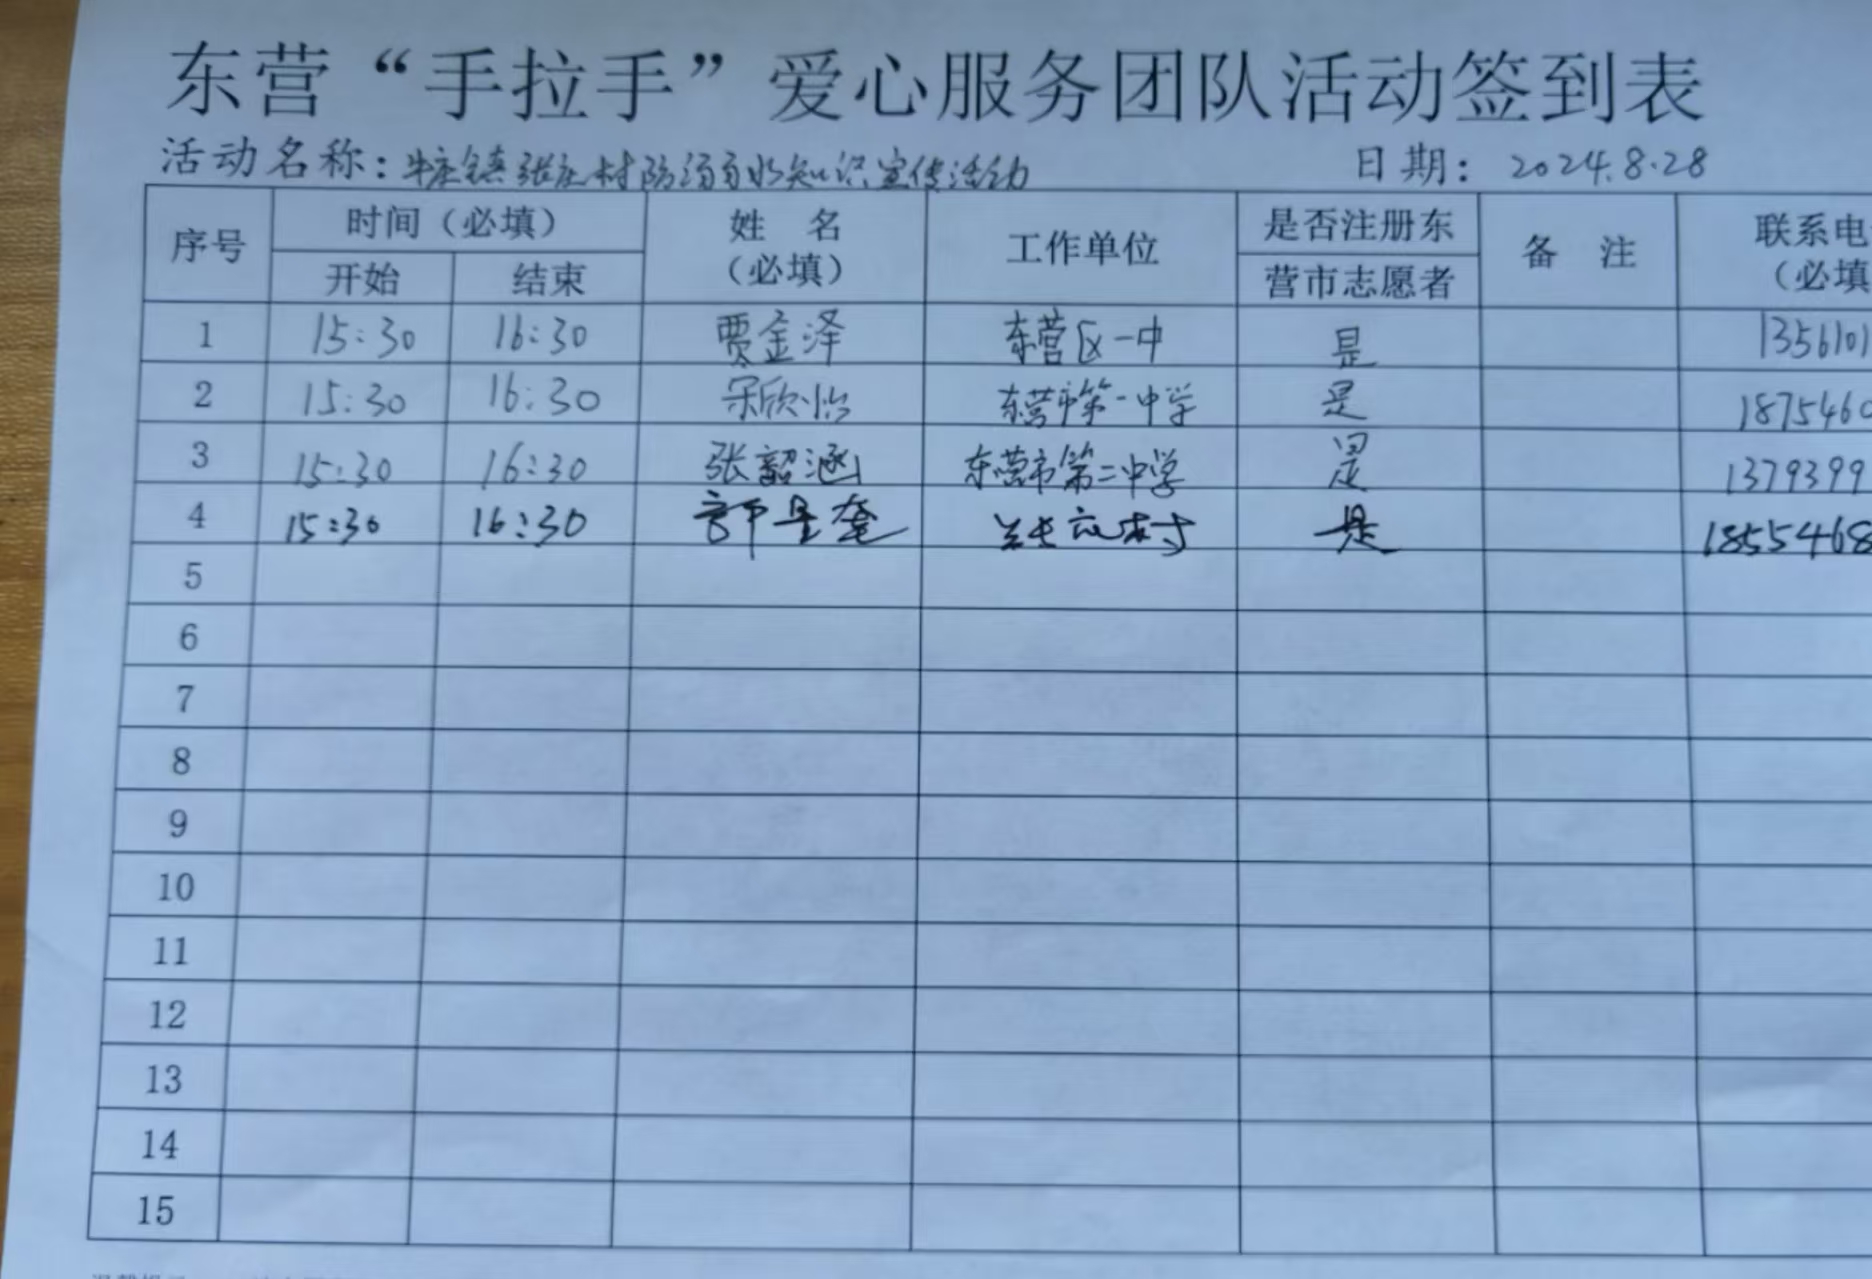 东营“手拉手”爱心服务团队活动签到表
活动名称：牛庄镇张庄村防溺水知识宣传活动 日期：2024.8.28
序号 时间（必填） 姓 名 （必填） 工作单位 是否注册东 营市志愿者 备 注 联系电 （必填
开始 结束
1 15:30 16:30 贾金泽 东营区一中 是 1356101
2 15:30 16:30 宋欣怡 东营市第一中学 是 1875460
3 15:30 16:30 张韶涵 东营市第二中学 是 1379399
4 15:30 16:30 村 是 1855468
5
6
7
8
9
10
11
12
13
14
15